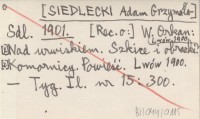 [SIEDLECKI Adam Grzymała]
Sdl. 1901. [Rec. o:] W. Orkan:
Lwów 1900.
Nad urwiskiem. Szkice i obrazki.
Komornicy. Powieść. Lwów 1900.
— Tyg. Il. nr 15: 300.